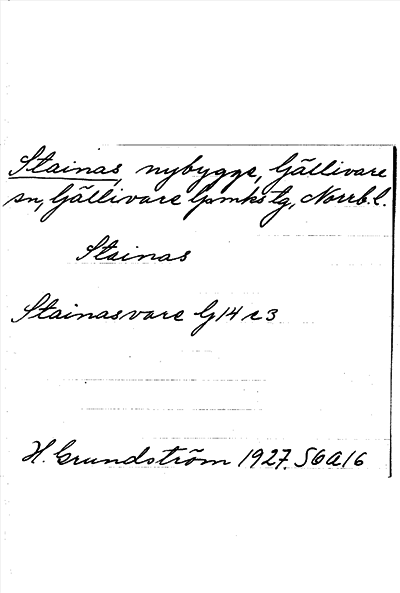 Stainas, nybygge, Gällivare
sn, Gällivare lpmks tg, Norrb. l.
Stainas
Stainasvare G14 c3
H. Grundström 1927. S6A16